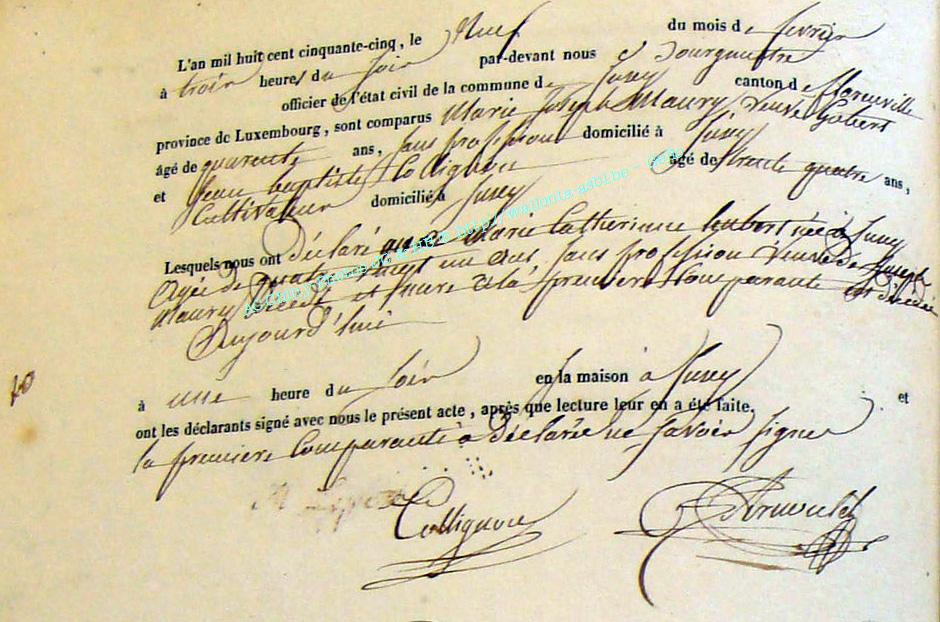 L'an mil huit cent cinquante-cinq, le neuf du mois de fevrier
à trois heures du soir par-devant nous Bourgmestre
officier de l'état civil de la commune de Juzey canton de
province de Luxembourg, sont comparus Marie Joseph Maury veuve Gobert
âgé de quarante ans, sans profession domicilié à Juzey
et Jean baptiste Collignon âgé de trente quatre ans,
Cultivateur domicilié à Juzey
Lesquels nous ont Déclaré que Marie Catherine née à Juzey
agée de quatre vingt un ans, sans profession veuve de Joseph
Maury décédé et mère de la première Comparante est décédée
Aujourd'hui
à une heure du soir en la maison à Juzey et
ont les déclarants signé avec nous le présent acte, après que lecture leur en a été faite.
la première Comparante a Déclaré ne savoir signer
Collignon